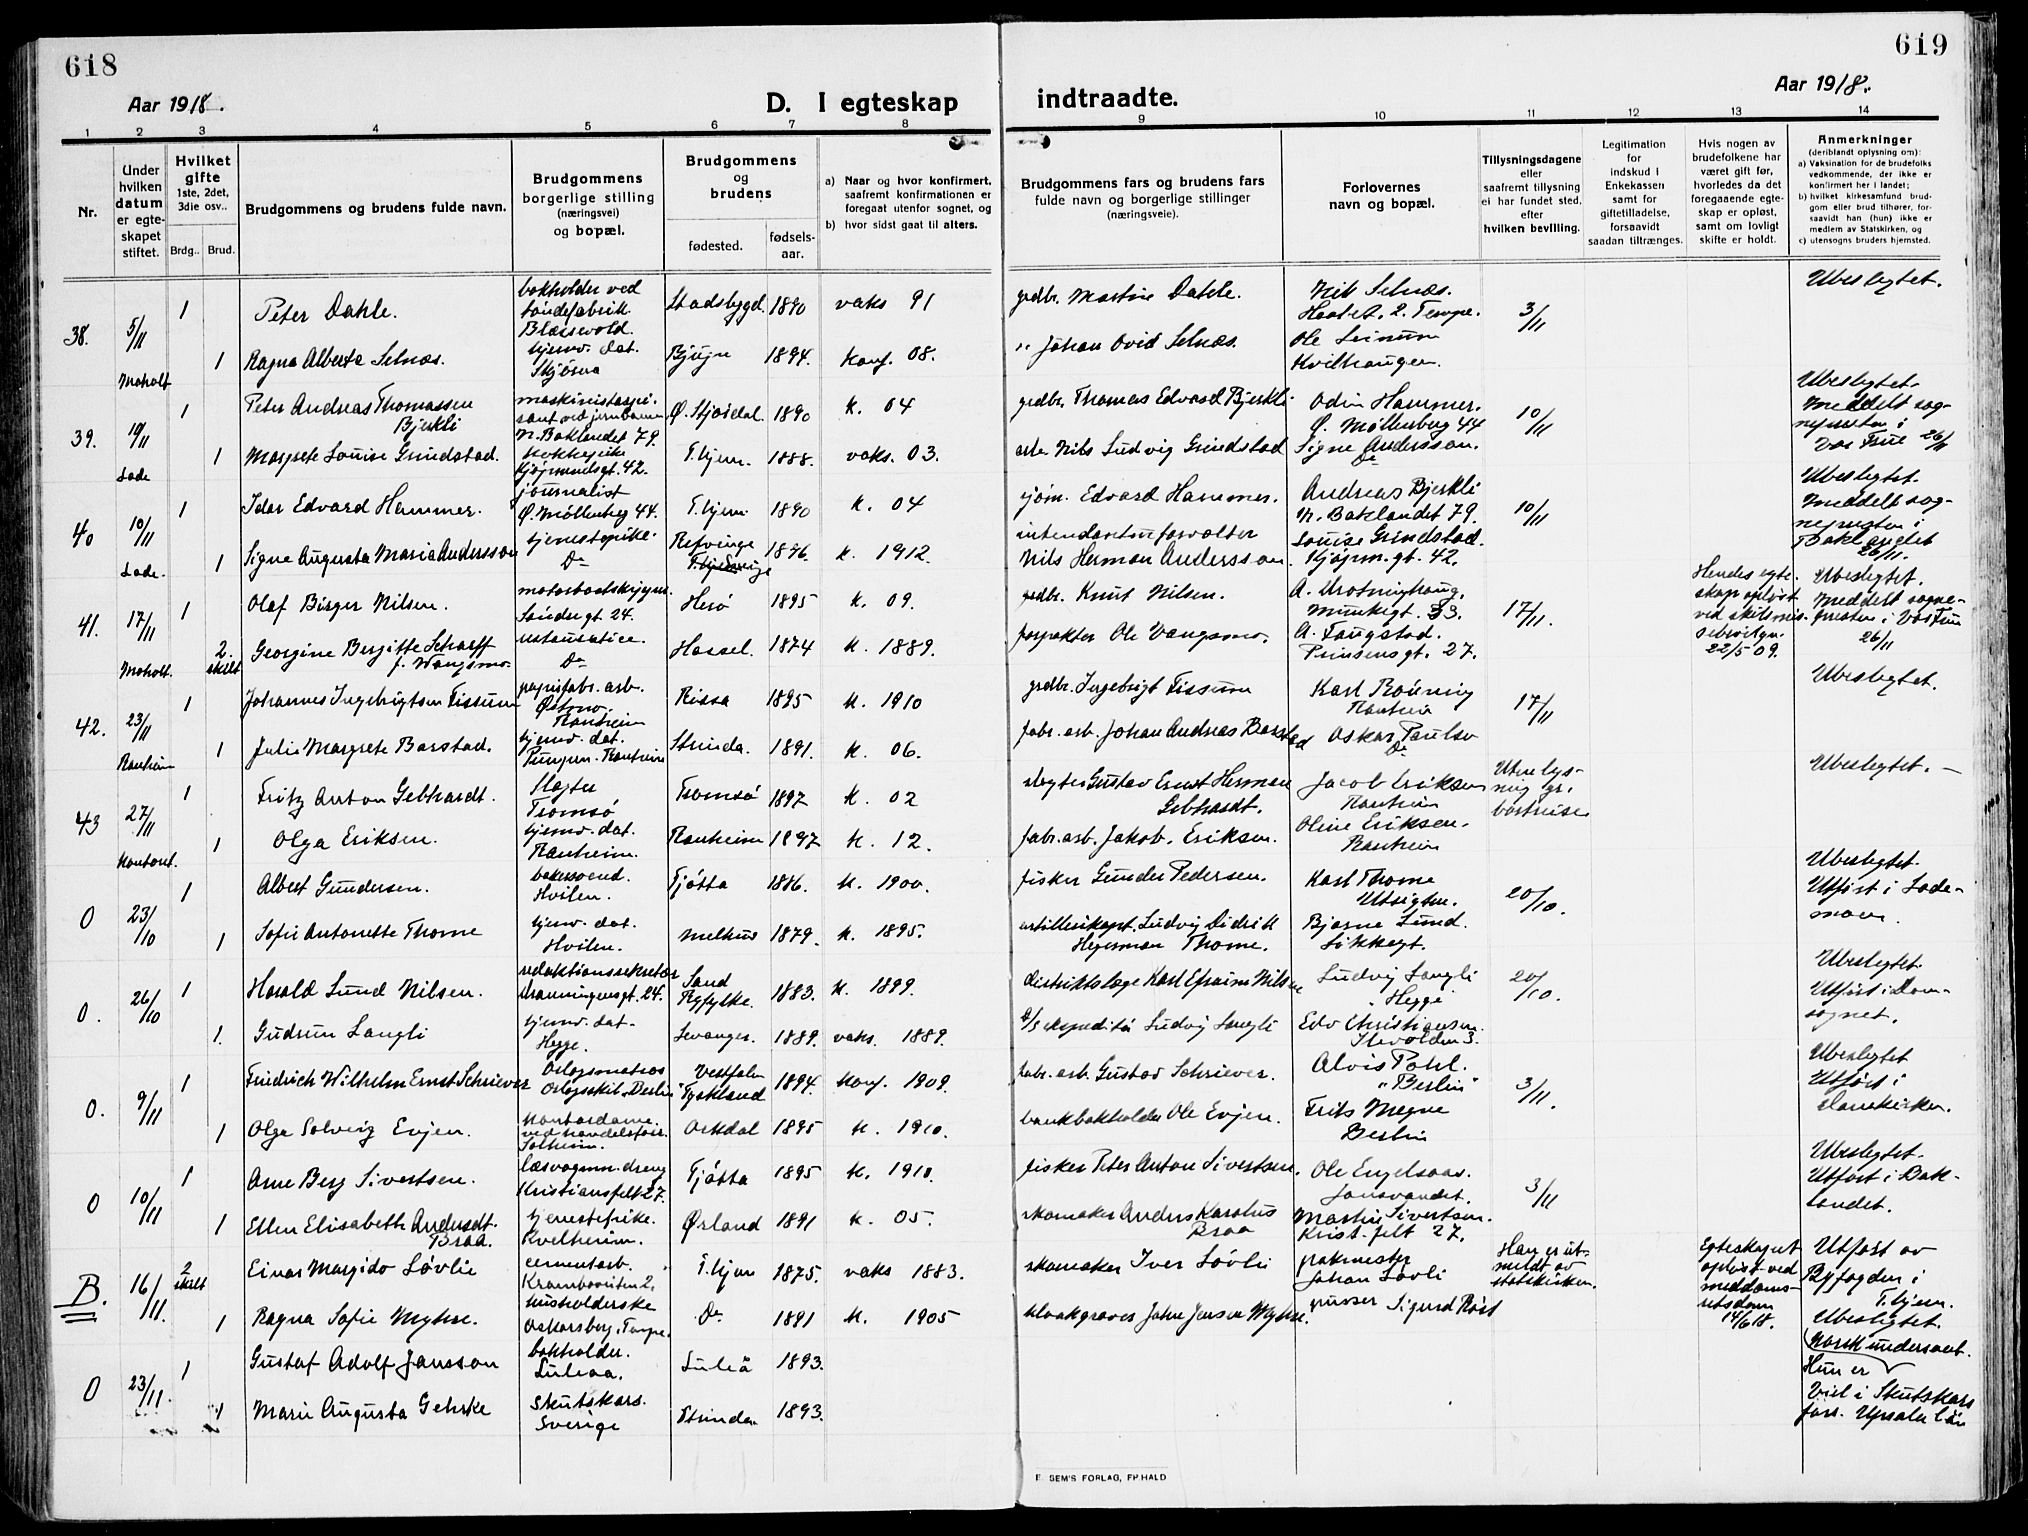 618
619
Aar 1918.
Aar 1918.
D. I egteskap
indtraadte.
1 2 3 4 5 6 7 8 9 10 11 12 13 14
Nr.
Under hvilken datum er egteskapet stiftet.
Hvilket gifte
1ste, 2det, 3die osv..
Brdg.. Brud.
Brudgommens og brudens fulde navn.
Brudgommens borgerlige stilling (næringsvei) og bopæl.
Brudgommens og brudens
fødested. fødselsaar.
a) Naar og hvor konfirmert, saafremt konfirmationen er foregaat utenfor sognet, og
b) hvor sidst gaat til alters.
Brudgommens fars og brudens fars fulde navn og borgerlige stillinger (næringsveie).
Forlovernes navn og bopæl.
Tillysningsdagene eller saafremt tillysning ei har fundet sted, efter hvilken bevilling.
Legitimation for indskud i Enkekassen samt for giftetilladelse, forsaavidt saadan tiltrænges.
Hvis nogen av brudefolkene har været gift før, hvorledes da det foregaaende egteskap er opløst, samt om lovligt skifte er holdt.
Anmerkninger
(deriblandt oplysning om):
a) Vaksination for de brudefolks vedkommende, der ikke er konfirmert her i landet;
b) hvilket kirkesamfund brudgom eller brud tilhører, forsaavidt han (hun) ikke er medlem av Statskirken, og
c) utensogns bruders hjemsted.
38. 5/11 Moholt
1 Peter Dahle. bokholder ved tøndefabrik. Stadsbygd 1890 vaks 91 grdbr. Martin Dahle. Nils Selnæs. 3/11 Ubeslegtet.
1 Ragna Alberta Selnæs. hjemv. dat. Bjugn 1894. konf. 08. " Johan Ovid Selnæs. Ole Leinum Kvilhaugen
39. 10/11 Lade
1 Peter Andreas Thomassen Bjerkli N. Baklandet 79. Ø. Stjørdal. 1890 k. 04 grdbr. Thomas Edvard Bjerkli Odin Hammer. Ø. Møllenberg 44 10/11 Ubeslegtet. Meddelt sognepresten i Vor Frue 26/11
1 Margrete Louise Grindstad. Kjøpmandsgt. 42. T.hjem. 1888. vaks. 03. Nils Ludvig Grindstad Signe Andersson. Do
40 10/11 Lade.
1 Idar Edvard Hammer. journalist Ø. Møllenbg 44. T.hjem 1890 k. 04 sjøm. Edvard Hammer. Andreas Bjerkli N. Baklandet 79. 10/11 Ubeslegtet. Meddelt sognepresten i Baklandet 26/11.
1 Signe Augusta Maria Andersson tjenestepike. Do 1896. k. 1912. intendanturforvalter Nils Herman Andersson. Louise Grindstad. Kjøpm.gt. 42.
41. 17/11 Moholt.
1 Olaf Birger Nilsen. Søndregt 24. Herø 1895 k. 09. grdbr. Knut Nilsen. Munkegt. 33. 17/11. Hendes egteskap opløst ved skilsmissebevilgn. 22/5 09. Ubeslegtet. Meddelt sognepresten i Vor Frue 26/11
2. skilt Georgine Bergitte Scharff f. Wangsmo. Do Hassel. 1874 k. 1889. Ole Vangsmo. A. Faugstad. Prinsensgt. 27.
42. 23/11 Ranheim
1 Johannes Ingebrigtsen Fissum papirfabr. arb. Ranheim Rissa 1895 k. 1910 grdbr. Ingebrigt Fissum Karl Rønning Ranheim 17/11 Ubeslegtet.
1 Julie Margrete Barstad. hjemv. dat. Ranheim Strinda. 1891. k. 06. fabr. arb. Johan Andreas Barstad Oskar Paulsen Do
43 27/11 Kontoret.
1 Fritz Anton Gebhardt. Slagter Tromsø Tromsø 1897 k. 02 slagter Gustav Ernst Herman Gebhardt. Jacob Eriksen Ranheim Ubeslegtet. –
1 Olga Eriksen. hjemv. dat. Ranheim. Ranheim 1897 k. 12. fabr. arb. Jakob. Eriksen. Oline Eriksen. Ranheim
0 23/10
1 Albert Gundersen. bakersvend. Hvilen. Tjøtta 1886. k. 1900. fisker Gunder Pedersen. Karl Thome Utsigten. 20/10. Ubeslegtet. Utført i Lademoen.
1 Sofie Antonette Thome hjemv. dat. Hvilen. Melhus 1879. k. 1895. artillerikapt. Ludvig Didrik Hegerman Thome. Bjarne Lund.
0. 26/10
1 Harald Lund Nilsen. redaktionssekretær Dronningensgt. 24. Sand Ryfylke. 1883. k. 1899. distriktslæge Karl Efraim Nilsen Ludvig Langli "Hegge" 20/10. Ubeslegtet. Utført i Domsognet.
1. Gudrun Langli hjemv. dat. Hegge. Levanger. 1889. vaks. 1889. Ludvig Langli Edv. Christiansen. Ilevolden 3.
0. 9/11
1 Friedrich Wilhelm Ernst Schriever Orlogsmatros Orlogsskib "Berlin" Vestfalen Tyskland 1894. konf. 1909. fabr. arb. Gustav Schriever. Alois Pohl. "Berlin" 3/11. Ubeslegtet Utført i
1 Olga Solveig Evjen. kontordame Solheim. Orkdal 1895 k. 1910. bankbokholder Ole Evjen. Frits Megne Berlin
0 10/11
1 Arne Berg Sivertsen. Kristiansfelt 27. Tjøtta 1895 k. 1910. fisker Peter Anton Sivertsen. Ole Engelsaas. Jonsvandet. 3/11 Ubeslegtet. Utført i Baklandet.
1 Ellen Elisabeth Andersdt. Braa. tjenestepike. Kvelheim. Ørland 1891 k. 05. skomaker Anders Karolius Braa Martin Sivertsen. Krist.felt 27.
B. 16/11.
2 skilt Einar Margido Løvlie cementarb. T.hjem 1875. vaks 1883. skomaker Iver Løvli Johan Løvli Han er utmeldt av statskirken. Egteskapet opløst ved meddomsretsdom 14/6 18. Utført av Byfogden i T.hjem. Ubeslegtet.
1 Ragna Sofie Myhre. husholderske Oskarsberg, Tempe. Do 1891 k. 1905 kloakgraver John Jensen Myhre. pusser Sigurd Røst
0 23/11.
1 Gustaf Adolf Jansson bokholder. Luleaa. Luleå 1893. norsk undersaat.
1 Marie Augusta Gehrke Skutskars. Sverige Strinda 1893. Hun er Viel i Skutskars förs. Upsala län
E. SEM'S FORLAG, FR.HALD